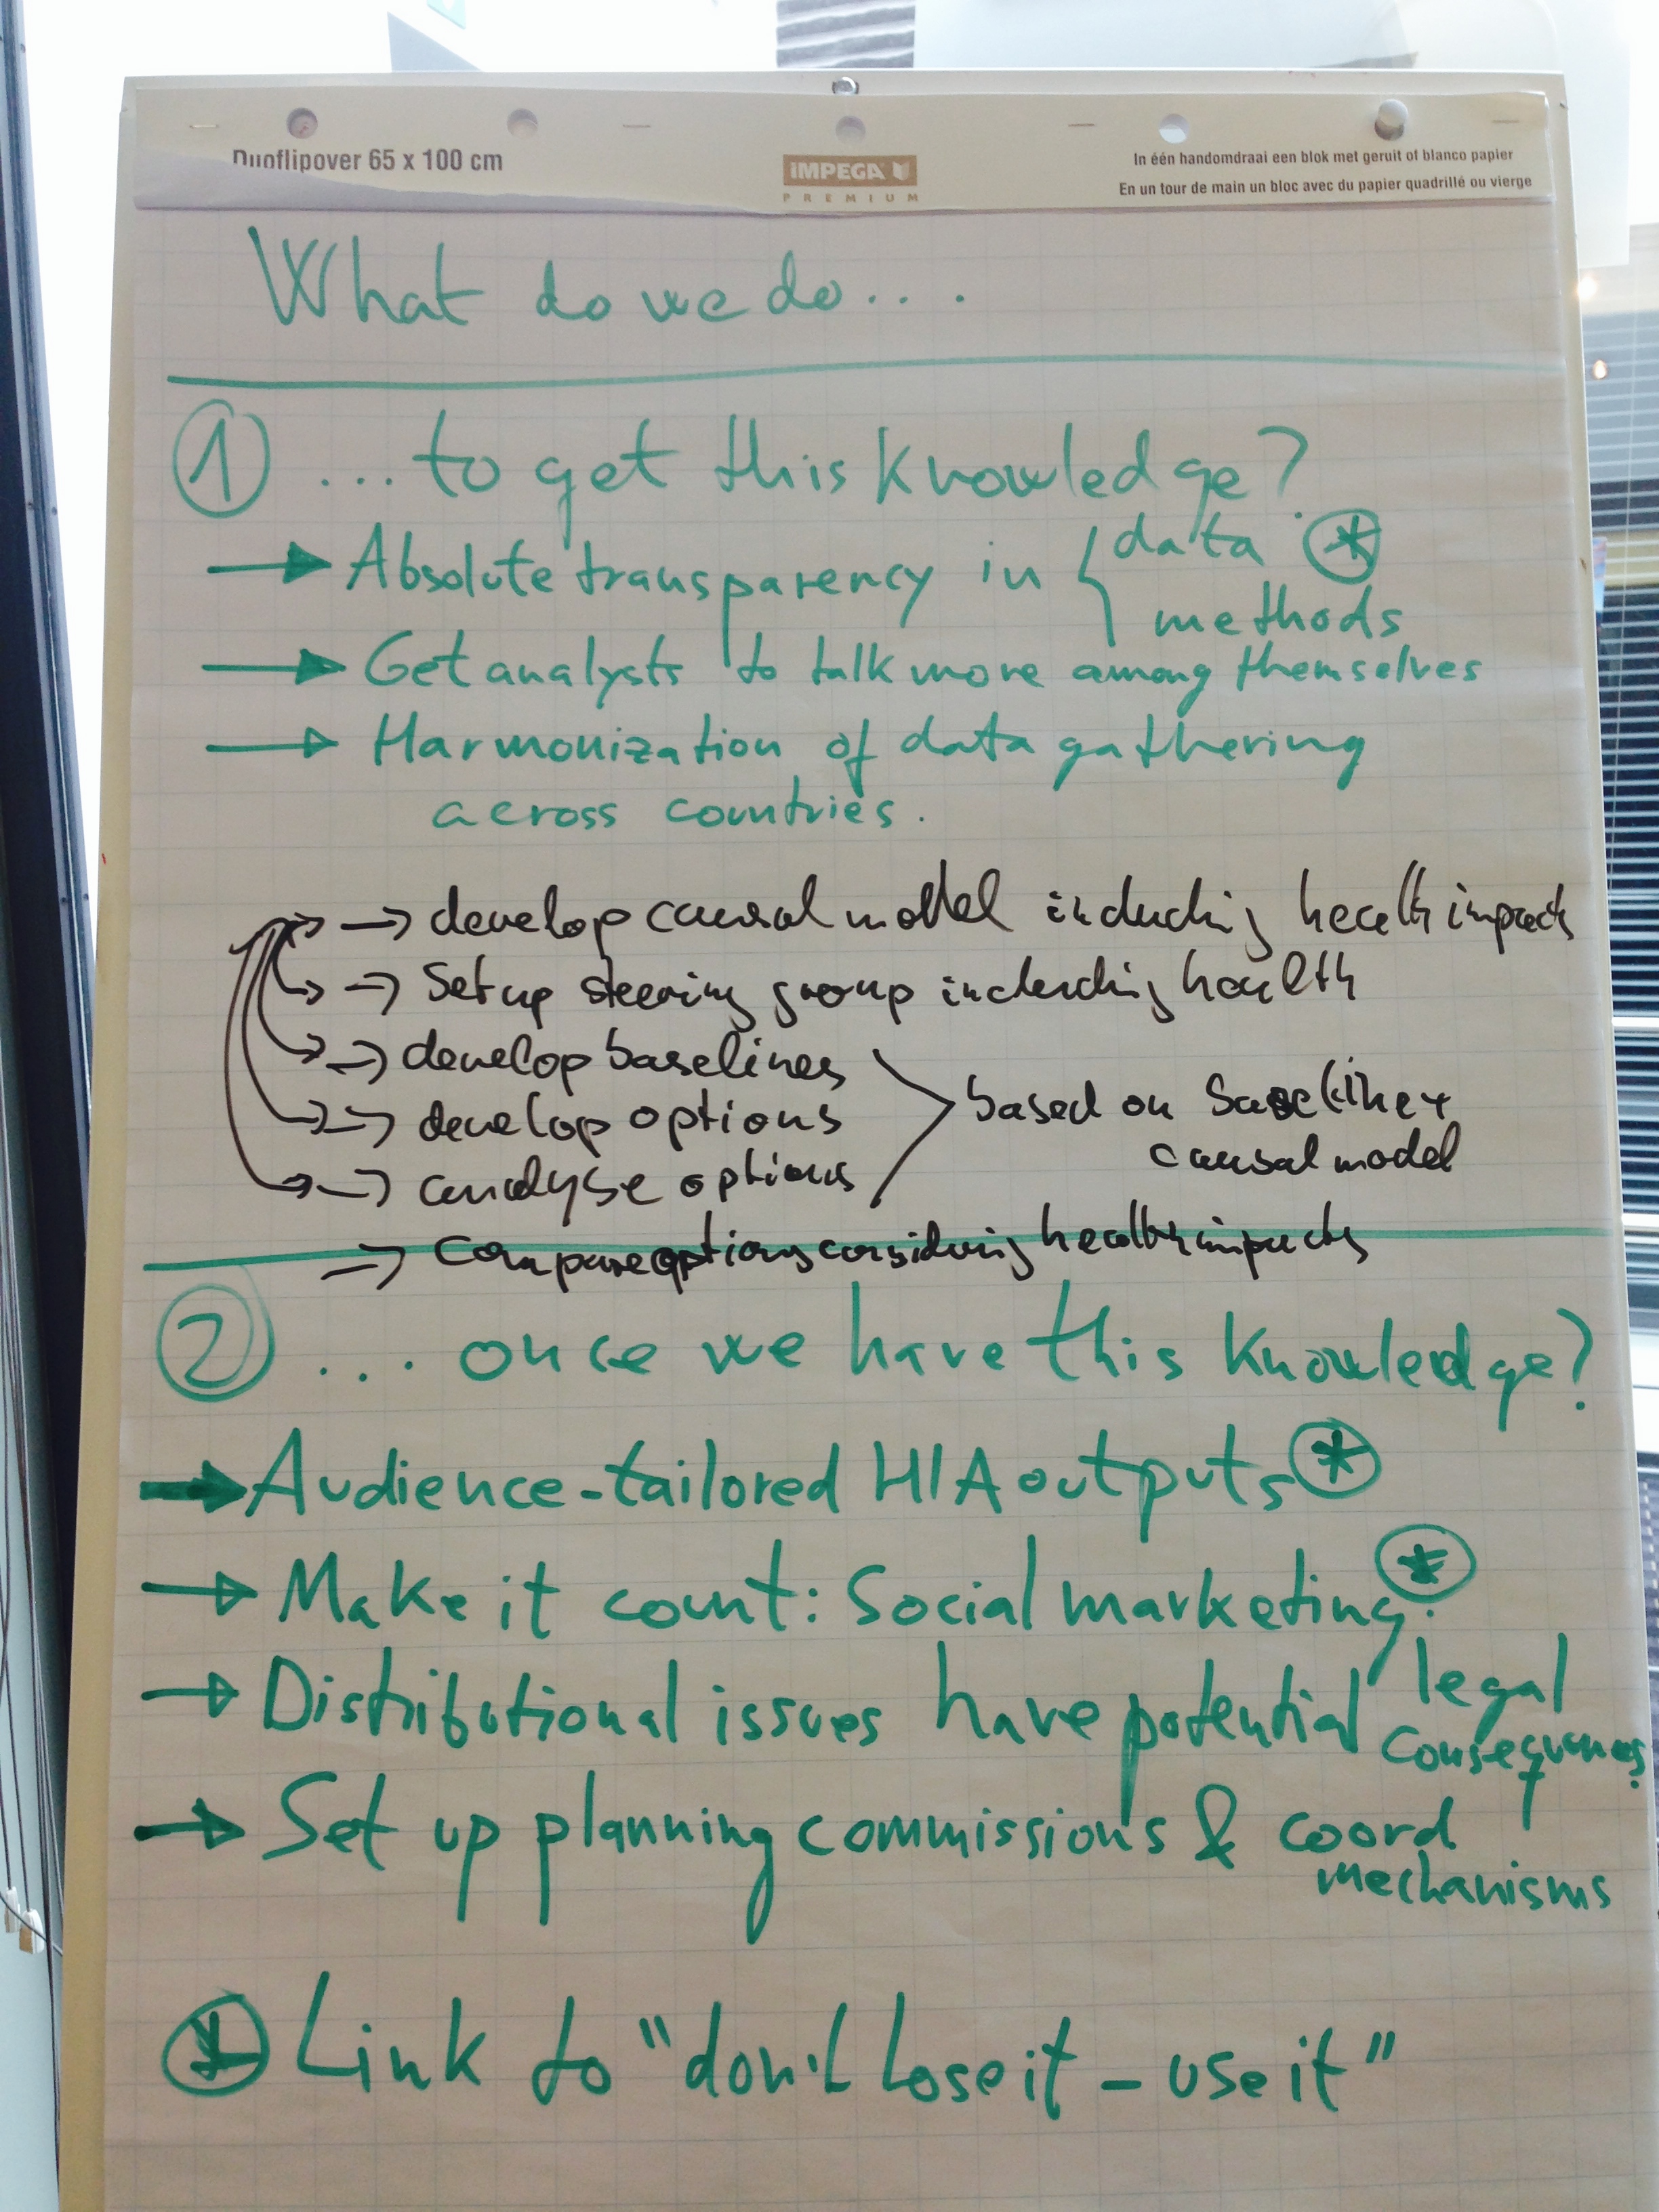 Duoflipover 65 x 100 cm
IMPEGA
PREMIUM
In één handomdraai een blok met geruit of blanco papier
En un tour de main un bloc avec du papier quadrillé ou vierge
What do we do....
1 ... to get this knowledge?
→ Absolute transparency in { data *
methods
→ Get analysts to talk more among themselves
→ Harmonization of data gathering
across countries.
→ develop causal model including health impacts
→ Set up steering group including health
→ develop baselines
→ develop options
→ analyse options
based on baseline +
causal model
→ compare options considering health impacts
2 ... once we have this knowledge?
→ Audience-tailored HIA outputs *
→ Make it count: Social marketing. *
→ Distributional issues have potential legal
consequences
→ Set up planning commissions & coord
mechanisms
* Link to "don't lose it – use it"